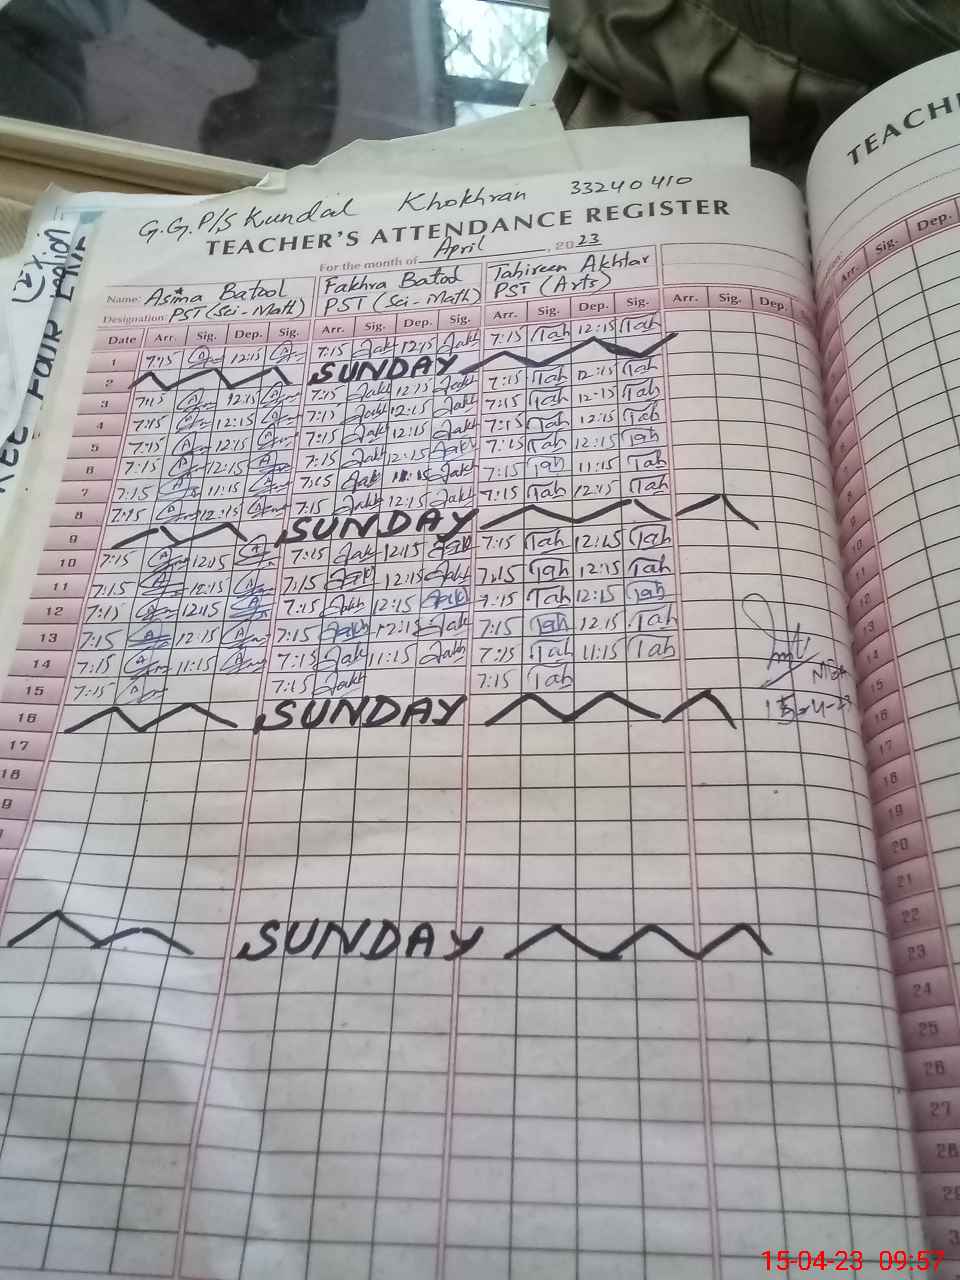 G.G.P/S Kundal Khokhran 33240410
TEACHER'S ATTENDANCE REGISTER
For the month of April, 2023
Name: Asima Batool Fakhra Batool Tahireen Akhtar
Designation: PST (Sci-Math) PST (Sci-Math) PST (Arts)
Date Arr. Sig. Dep. Sig. Arr. Sig. Dep. Sig. Arr. Sig. Dep. Sig. Arr. Sig. Dep.
1 7:15 12:15 7:15 Fakh 12:15 Fakh 7:15 Tah 12:15 Tah
2 SUNDAY
3 7:15 12:15 7:15 Fakh 12:15 Fakh 7:15 Tah 12:15 Tah
4 7:15 12:15 7:15 Fakh 12:15 Fakh 7:15 Tah 12:15 Tah
5 7:15 12:15 7:15 Fakh 12:15 Fakh 7:15 Tah 12:15 Tah
6 7:15 12:15 7:15 Fakh 12:15 Fakh 7:15 Tah 12:15 Tah
7 7:15 11:15 7:15 Fakh 11:15 Fakh 7:15 Tah 11:15 Tah
8 7:15 12:15 7:15 Fakh 12:15 Fakh 7:15 Tah 12:15 Tah
9 SUNDAY
10 7:15 12:15 7:15 Fakh 12:15 Fakh 7:15 Tah 12:15 Tah
11 7:15 12:15 7:15 Fakh 12:15 Fakh 7:15 Tah 12:15 Tah
12 7:15 12:15 7:15 Fakh 12:15 Fakh 7:15 Tah 12:15 Tah
13 7:15 12:15 7:15 Fakh 12:15 Fakh 7:15 Tah 12:15 Tah
14 7:15 11:15 7:15 Fakh 11:15 Fakh 7:15 Tah 11:15 Tah
15 7:15 7:15 Fakh 7:15 Tah
16 SUNDAY
17
18
SUNDAY
15-4-23
TEACH
Arr. Sig. Dep.
8
9
10
11
12
13
14
15
16
17
18
19
20
21
22
23
24
25
26
27
28
15-04-23 09:57